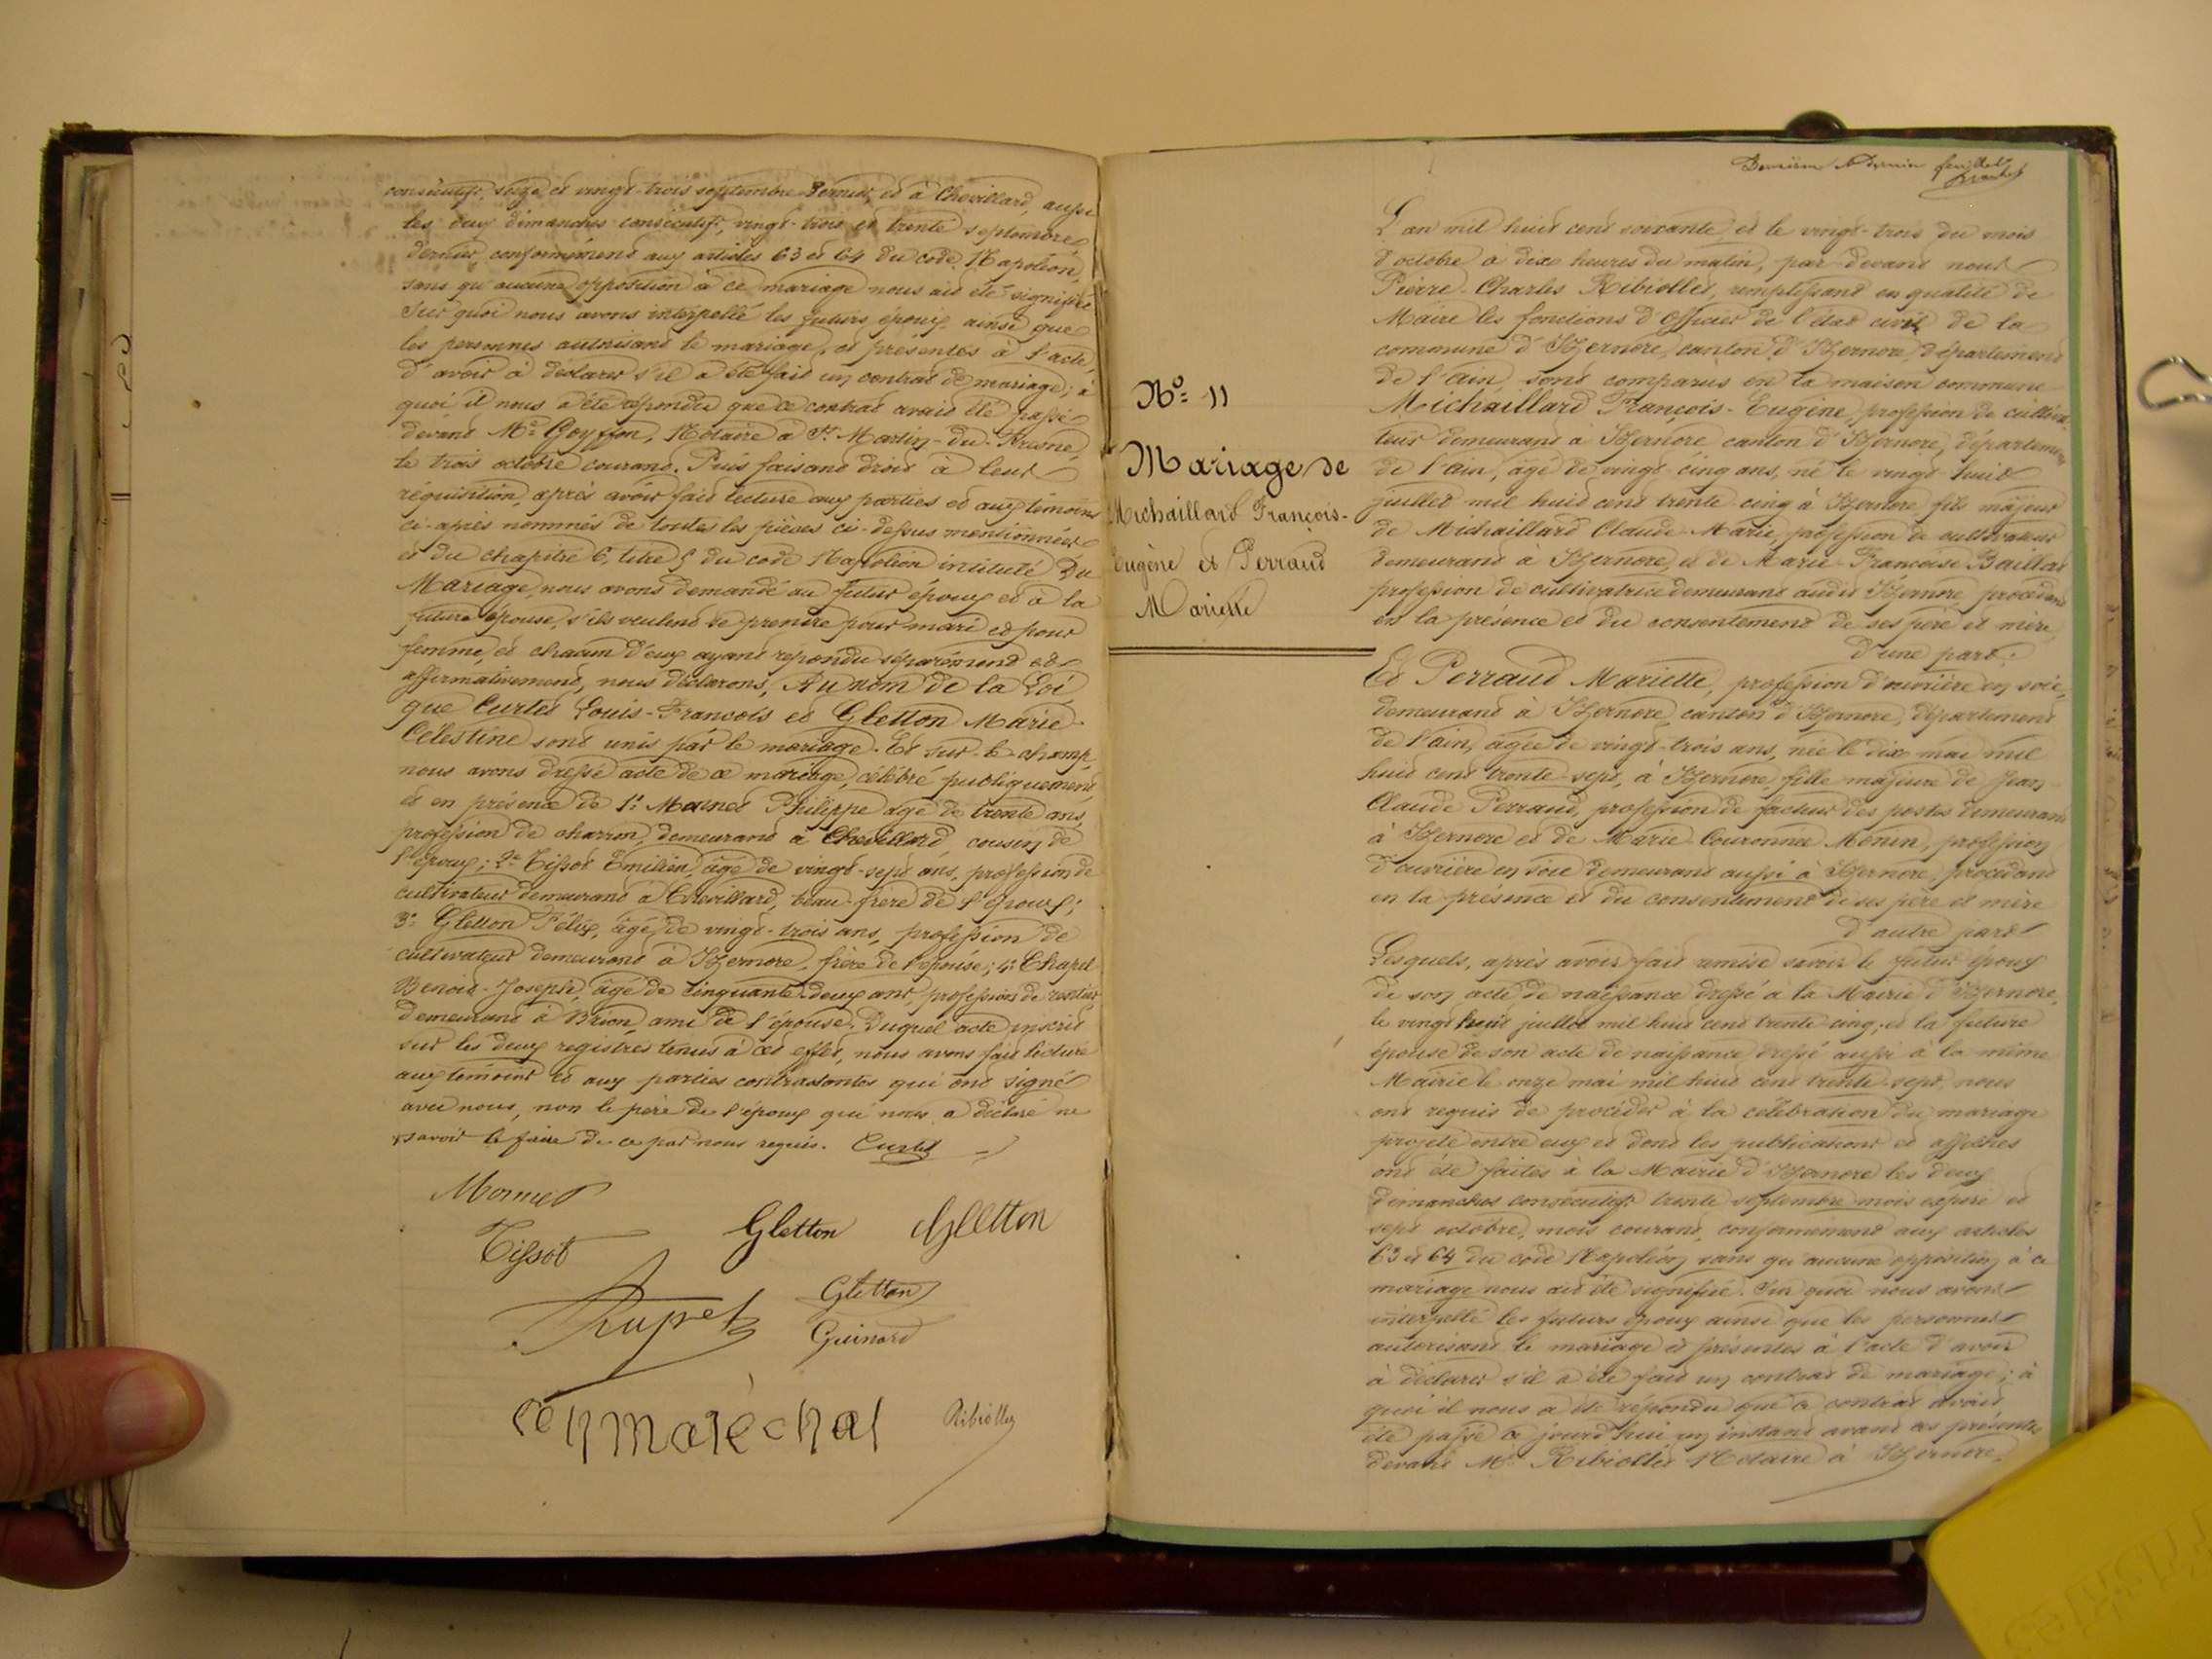 consécutifs, seize et vingt-trois septembre dernier, et à Chevillard, aussi
les deux dimanches consécutifs, vingt-trois et trente septembre
dernier, conformément aux articles 63 et 64 du code Napoléon,
sans qu'aucune opposition à ce mariage nous ait été signifiée
Sur quoi nous avons interpellé les futurs époux ainsi que
les personnes autorisant le mariage, et présentes à l'acte,
d'avoir à déclarer s'il a été fait un contrat de mariage; à
quoi il nous a été répondu que ce contrat avait été passé
devant Me Goyffon, Notaire à St Martin-du-Fresne,
le trois octobre courant. Puis faisant droit à leur
réquisition, après avoir fait lecture aux parties et aux témoins
ci-après nommés de toutes les pièces ci-dessus mentionnées
et du chapitre 6, titre 5 du code Napoléon intitulé Du
Mariage, nous avons demandé au futur époux et à la
future épouse, s'ils veulent se prendre pour mari et pour
femme, et chacun d'eux ayant repondu séparément et
affirmativement, nous déclarons, Au nom de la Loi,
que Curtet Louis-François et Gletton Marie
Célestine sont unis par le mariage. Et sur-le-champ,
nous avons dressé acte de ce mariage, célébré publiquement,
et en présence de 1° Monnet Philippe âgé de trente ans,
profession de charron, demeurant à Chevillard cousin de
l'époux; 2° Tissot Emilien, âgé de vingt-sept ans, profession de
cultivateur demeurant à Chevillard, beau-frère de l'époux;
3° Gletton Félix, âgé de vingt-trois ans, profession de
cultivateur demeurant à Izernore, frère de l'épouse; 4°
Benoit-Joseph, âgé de cinquante-deux ans, profession de rentier,
demeurant à Brion, ami de l'épouse. Duquel acte inscrit
sur les deux registres tenus à cet effet, nous avons fait lecture
aux témoins et aux parties contractantes qui ont signé
avec nous, non le père de l'époux qui nous a déclaré ne
savoir le faire de ce par nous requis. Curtet
Monnet
Tissot Gletton Gletton
Gletton
Guinard
maréchal Ribiollet
Deuxième et dernier feuillet
L'an mil huit cent soixante, et le vingt-trois du mois
d'octobre à dix heures du matin, par-devant nous
Pierre-Charles Ribiollet, remplissant en qualité de
Maire les fonctions d'Officier de l'état civil de la
commune d'Izernore, canton d'Izernore, département
de l'ain, sont comparus en la maison commune
Michaillard François-Eugène, profession de cultiva-
teur demeurant à Izernore canton d'Izernore, département
de l'ain, âgé de vingt-cinq ans, né le vingt-huit
juillet mil huit cent trente-cinq à Izernore fils majeur
de Michaillard Claude-Marie, profession de cultivateur
demeurant à Izernore, et de Marie-Françoise Baillat
profession de cultivatrice demeurant audit Izernore, procédant
en la présence et du consentement de ses père et mère,
d'une part.
Et Perraud Mariette, profession d'ouvrière en soie,
demeurant à Izernore, canton d'Izernore, département
de l'ain, âgée de vingt-trois ans, née le dix mai mil
huit cent trente-sept, à Izernore, fille majeure de Jean-
Claude Perraud, profession de facteur des postes demeurant
à Izernore et de Marie-Couronnée Monin, profession
d'ouvrière en soie demeurant aussi à Izernore, procédant
en la présence et du consentement de ses père et mère
d'autre part
Lesquels, après avoir fait remise savoir le futur époux
de son acte de naissance dressé à la Mairie d'Izernore,
le vingt huit juillet mil huit cent trente-cinq; et la future
épouse de son acte de naissance dressé aussi à la même
Mairie le onze mai mil huit cent trente-sept, nous
ont requis de procéder à la célébration du mariage
projeté entre eux et dont les publications et affiches
ont été faites à la Mairie d'Izernore les deux
dimanches consécutifs trente septembre mois expiré et
sept octobre, mois courant, conformément aux articles
63 et 64 du code Napoléon, sans qu'aucune opposition à ce
mariage nous ait été signifiée. Sur quoi nous avons
interpellé les futurs époux ainsi que les personnes
autorisant le mariage et présentes à l'acte d'avoir
à déclarer s'il a été fait un contrat de mariage; à
quoi il nous a été répondu que ce contrat avait
été passé ce jourd'hui un instant avant ces présentes
devant Me Ribiollet Notaire à Izernore.
No: 11
Mariage de
Michaillard François-
Eugène et Perraud
Mariette